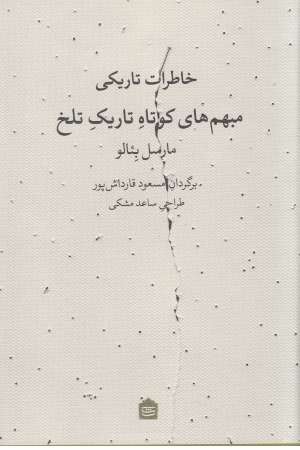 خاطرات تاریکی
مبهم‌های کوتاهِ تاریکِ تلخ
مارسل بِئالو
برگردان مسعود قارداش‌پور
طراحی ساعد مشکی